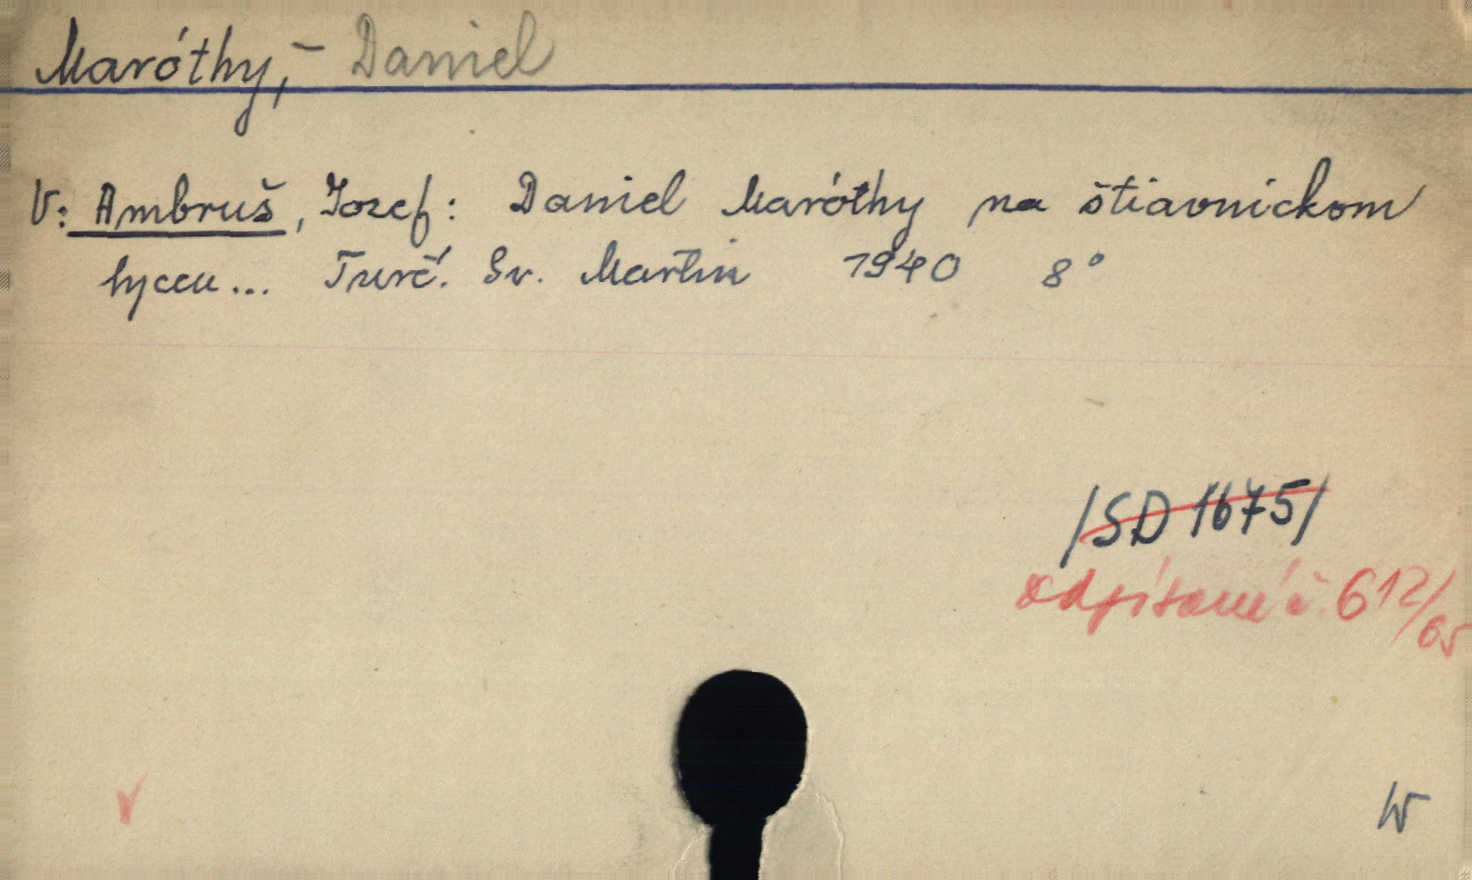 Maróthy, - Daniel
V: Ambruš, Jozef: Daniel Maróthy na štiavnickom
lyceu... Turč. Sv. Martin 1940 8°
/SD 1675/
odpísané č. 612/65
V
W